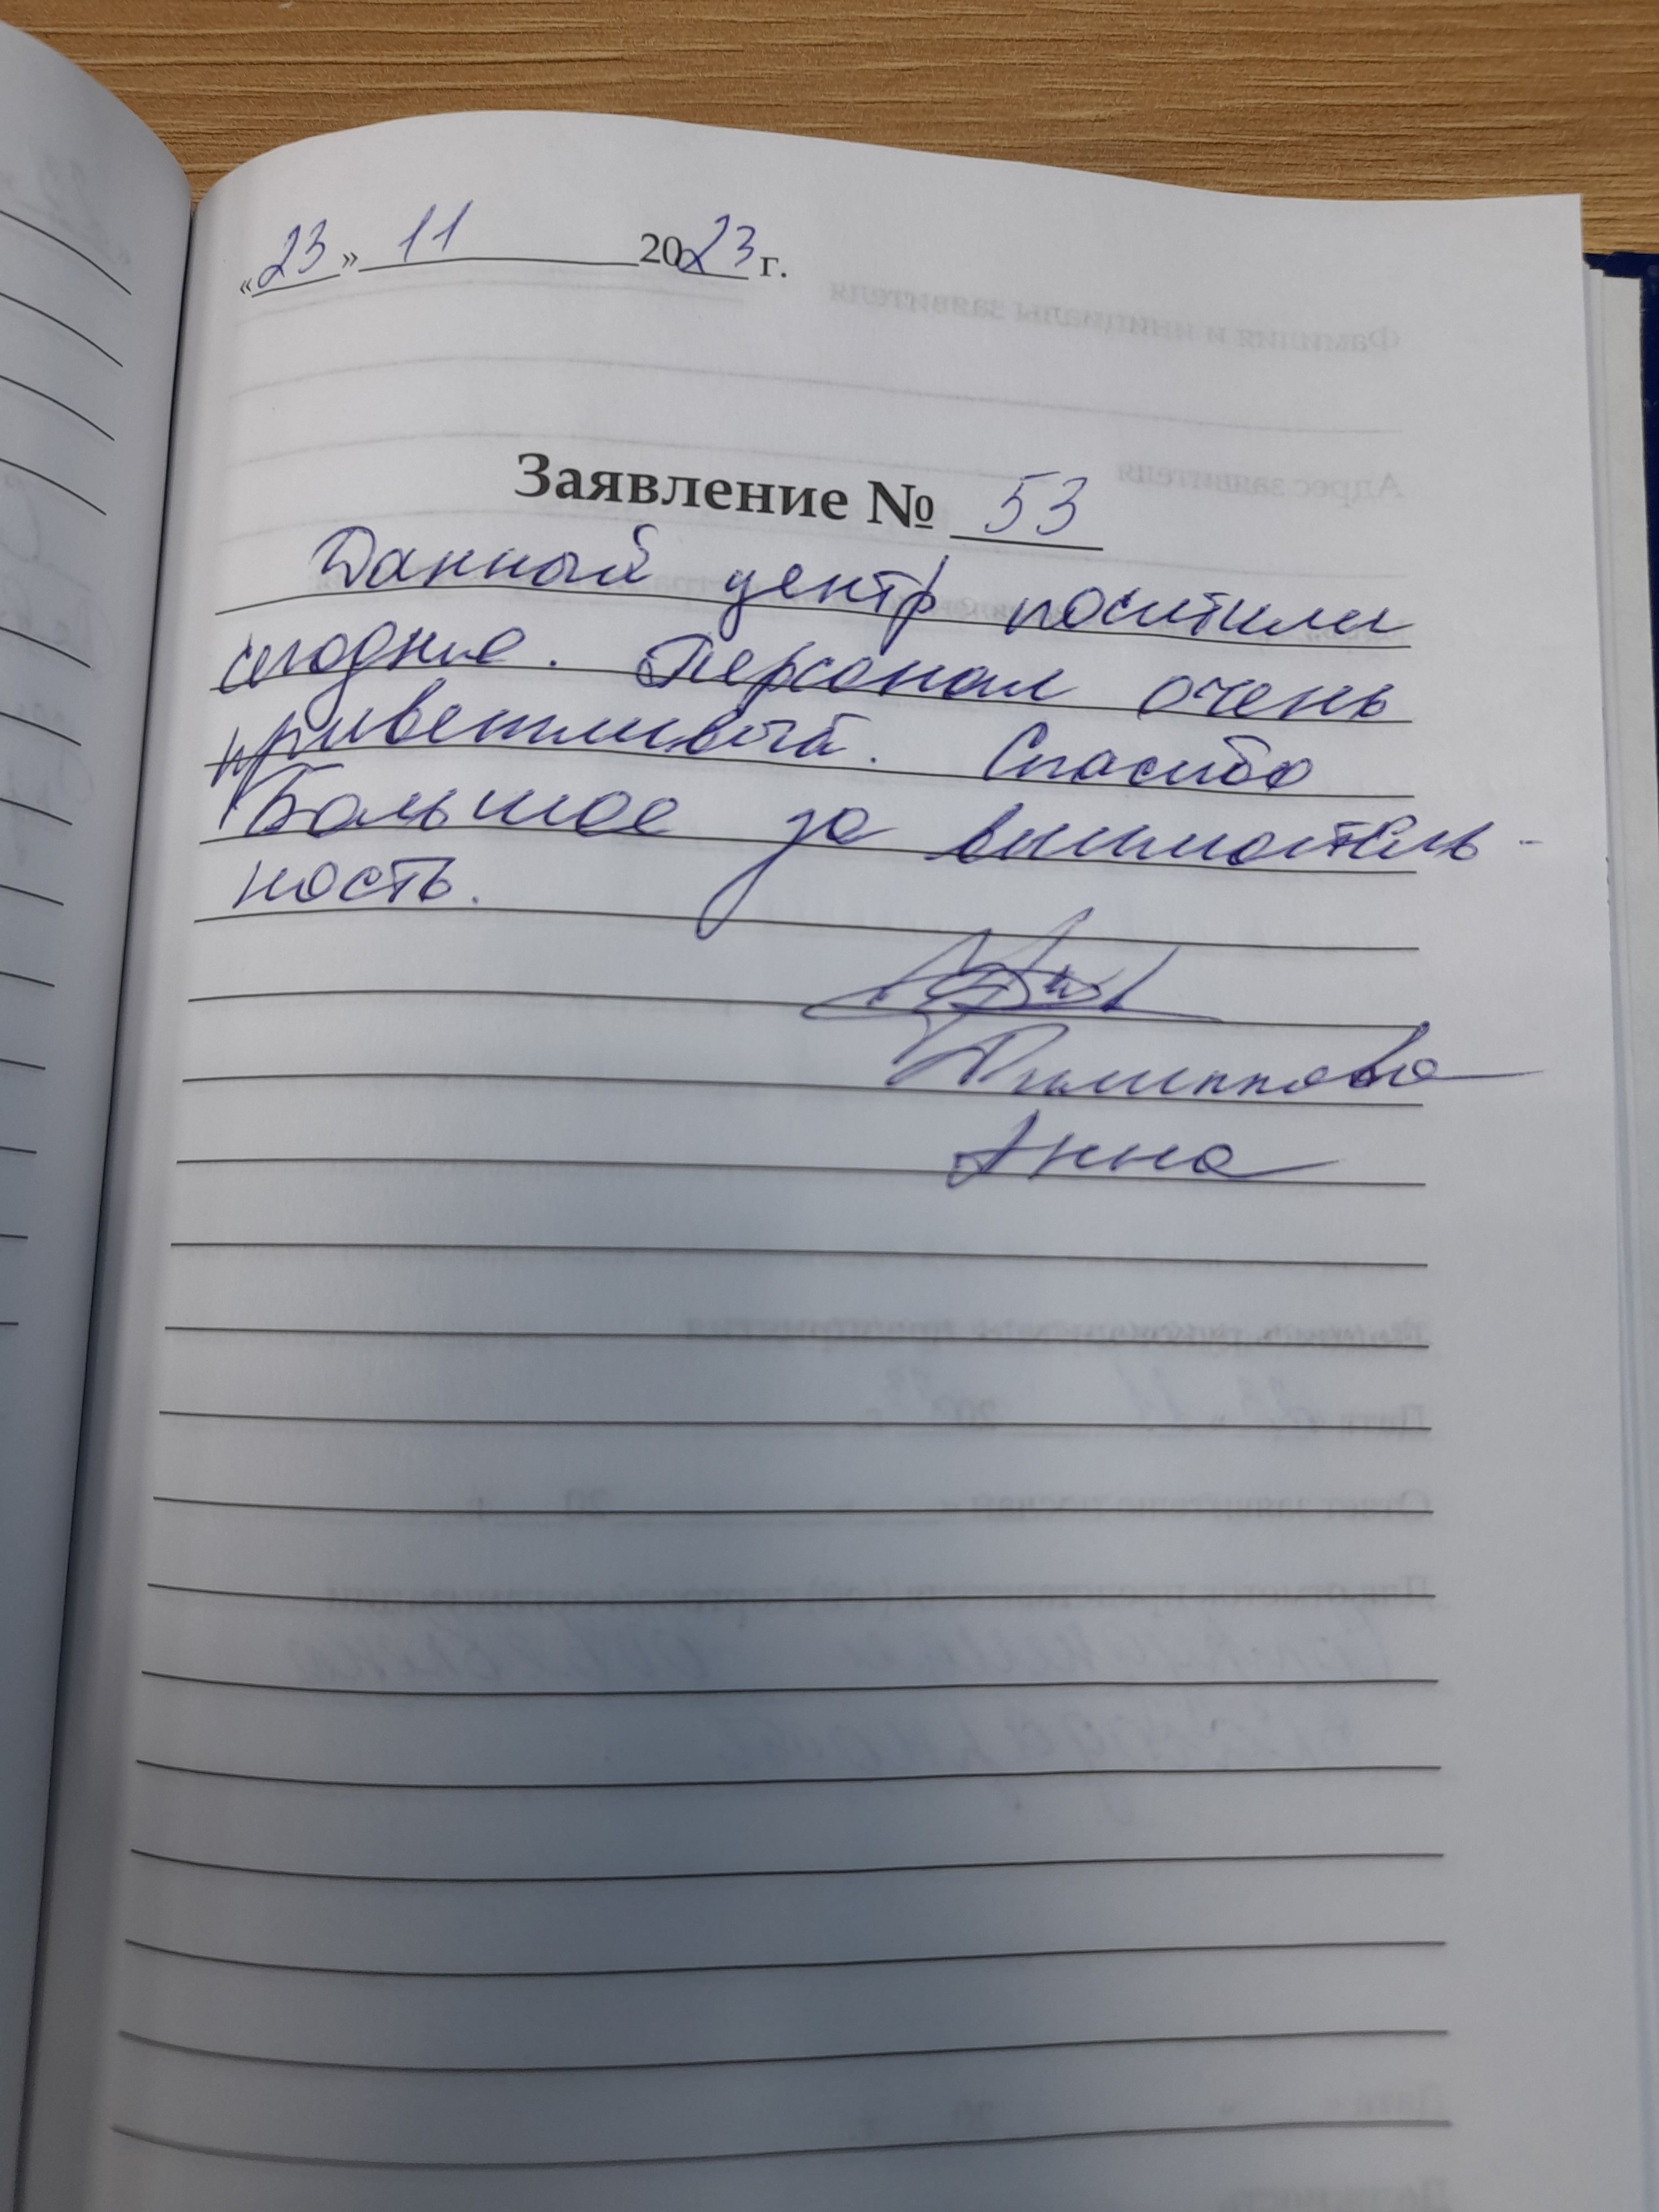 «23» 11 2023 г.
Заявление № 53
Данный центр поситили
сегодня. Персонал очень
приветливый. Спасибо
Большое за вниматель-
ность.
Филиппова
Анна